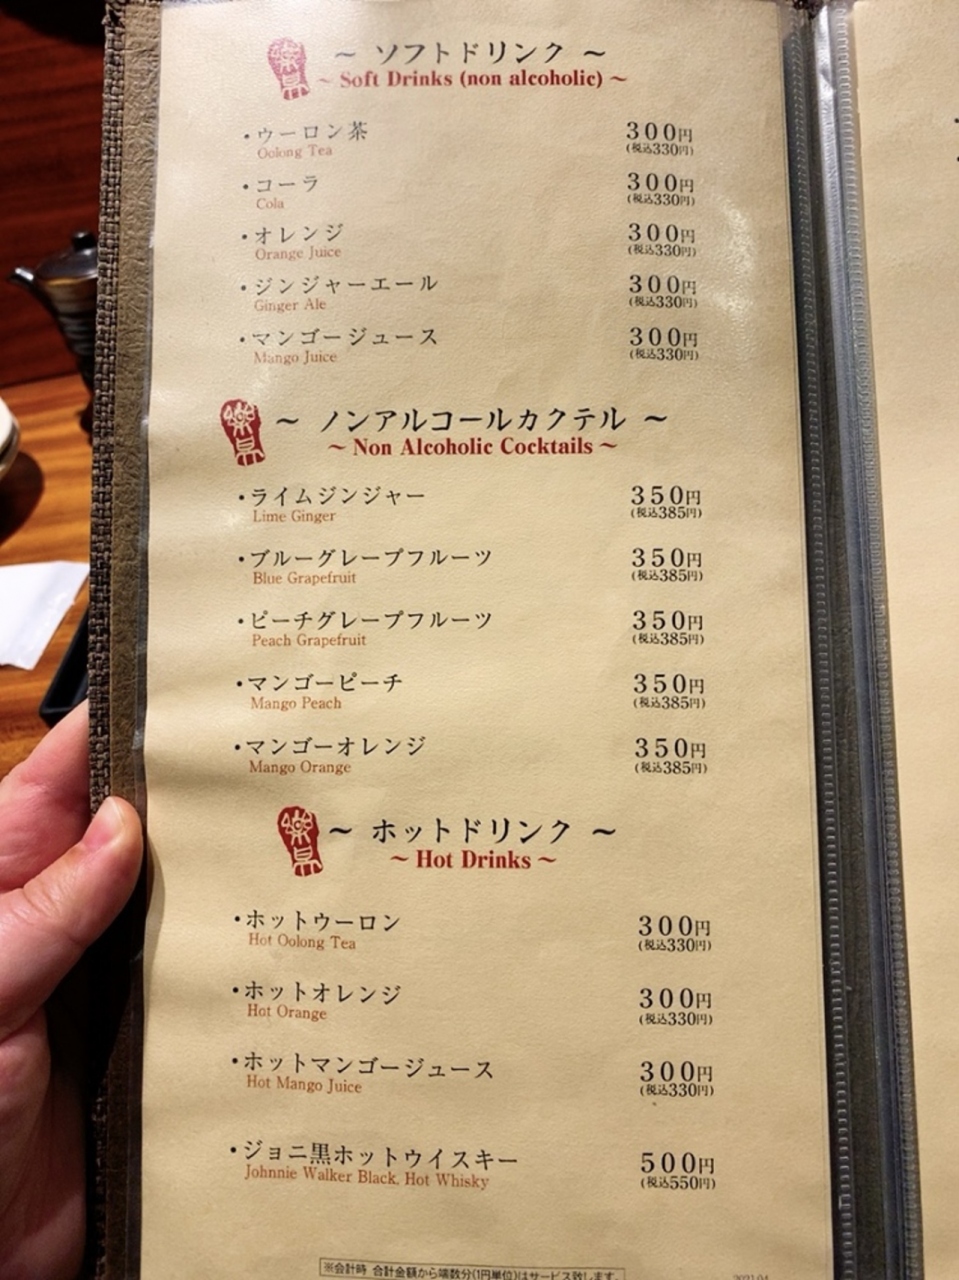 ～ ソフトドリンク ～
～ Soft Drinks (non alcoholic) ～
・ウーロン茶 300円
Oolong Tea (税込330円)
・コーラ 300円
Cola (税込330円)
・オレンジ 300円
Orange Juice (税込330円)
・ジンジャーエール 300円
Ginger Ale (税込330円)
・マンゴージュース 300円
Mango Juice (税込330円)
～ ノンアルコールカクテル ～
～ Non Alcoholic Cocktails ～
・ライムジンジャー 350円
Lime Ginger (税込385円)
・ブルーグレープフルーツ 350円
Blue Grapefruit (税込385円)
・ピーチグレープフルーツ 350円
Peach Grapefruit (税込385円)
・マンゴーピーチ 350円
Mango Peach (税込385円)
・マンゴーオレンジ 350円
Mango Orange (税込385円)
～ ホットドリンク ～
～ Hot Drinks ～
・ホットウーロン 300円
Hot Oolong Tea (税込330円)
・ホットオレンジ 300円
Hot Orange (税込330円)
・ホットマンゴージュース 300円
Hot Mango Juice (税込330円)
・ジョニ黒ホットウイスキー 500円
Johnnie Walker Black, Hot Whisky (税込550円)
※会計時 合計金額から端数分(1円単位)はサービス致します。